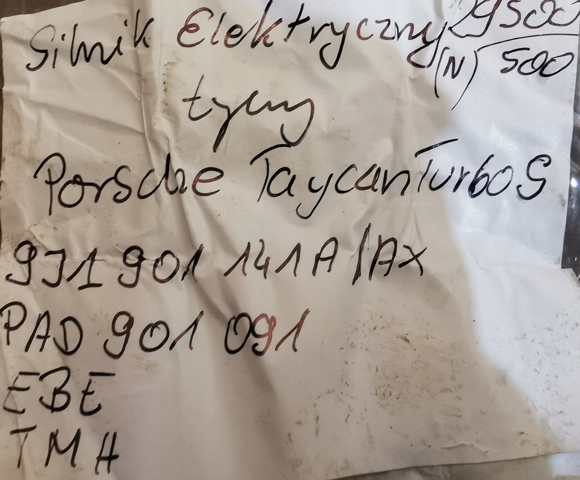 Silnik Elektryczny 29500
(N) 500
tylny
Porsche Taycan Turbo S
9J1 901 141A/AX
PAD 901 091
EBE
TMH